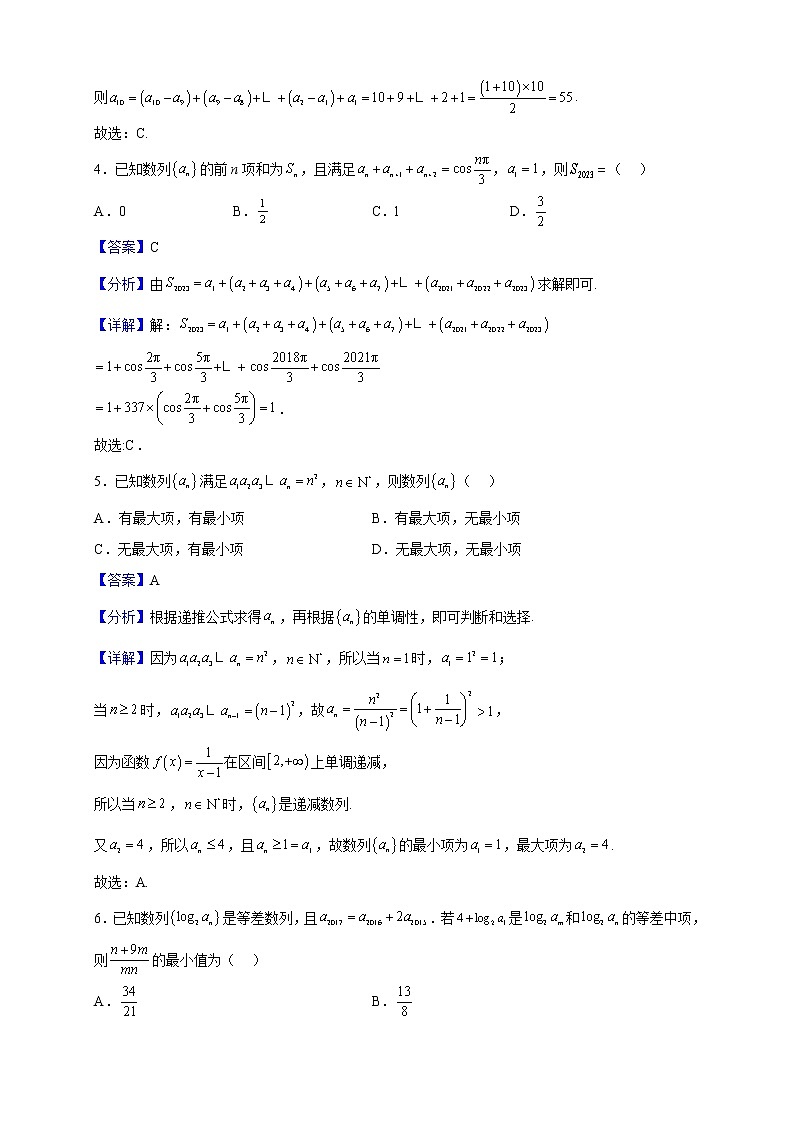 则a₁₀=(a₁₀−a₉)+(a₉−a₈)+∟ +(a₂−a₁)+a₁=10+9+∟ +2+1=(1+10)×10/2=55.
故选：C.
4．已知数列{aₙ}的前n项和为Sₙ，且满足aₙ+aₙ₊₁+aₙ₊₂=cos nπ/3，a₁=1，则S₂₀₂₃=（ ）
A．0 B．1/2 C．1 D．3/2
【答案】C
【分析】由S₂₀₂₃=a₁+(a₂+a₃+a₄)+(a₅+a₆+a₇)+∟ +(a₂₀₂₁+a₂₀₂₂+a₂₀₂₃)求解即可.
【详解】解：S₂₀₂₃=a₁+(a₂+a₃+a₄)+(a₅+a₆+a₇)+∟ +(a₂₀₂₁+a₂₀₂₂+a₂₀₂₃)
=1+cos 2π/3+cos 5π/3+∟ +cos 2018π/3+cos 2021π/3
=1+337×(cos 2π/3+cos 5π/3)=1．
故选:C．
5．已知数列{aₙ}满足a₁a₂a₃∟ aₙ=n²，n∈N*，则数列{aₙ}（ ）
A．有最大项，有最小项 B．有最大项，无最小项
C．无最大项，有最小项 D．无最大项，无最小项
【答案】A
【分析】根据递推公式求得aₙ，再根据{aₙ}的单调性，即可判断和选择.
【详解】因为a₁a₂a₃∟ aₙ=n²，n∈N*，所以当n=1时，a₁=1²=1；
当n≥2时，a₁a₂a₃∟ aₙ₋₁=(n−1)²，故aₙ=n²/(n−1)²=(1+1/(n−1))²>1，
因为函数f(x)=1/(x−1)在区间[2,+∞)上单调递减，
所以当n≥2，n∈N*时，{aₙ}是递减数列.
又a₂=4，所以aₙ≤4，且aₙ≥1=a₁，故数列{aₙ}的最小项为a₁=1，最大项为a₂=4.
故选：A.
6．已知数列{log₂aₙ}是等差数列，且a₂₀₁₇=a₂₀₁₆+2a₂₀₁₅．若4+log₂a₁是log₂aₘ和log₂aₙ的等差中项，
则(n+9m)/mn的最小值为（ ）
A．34/21 B．13/8